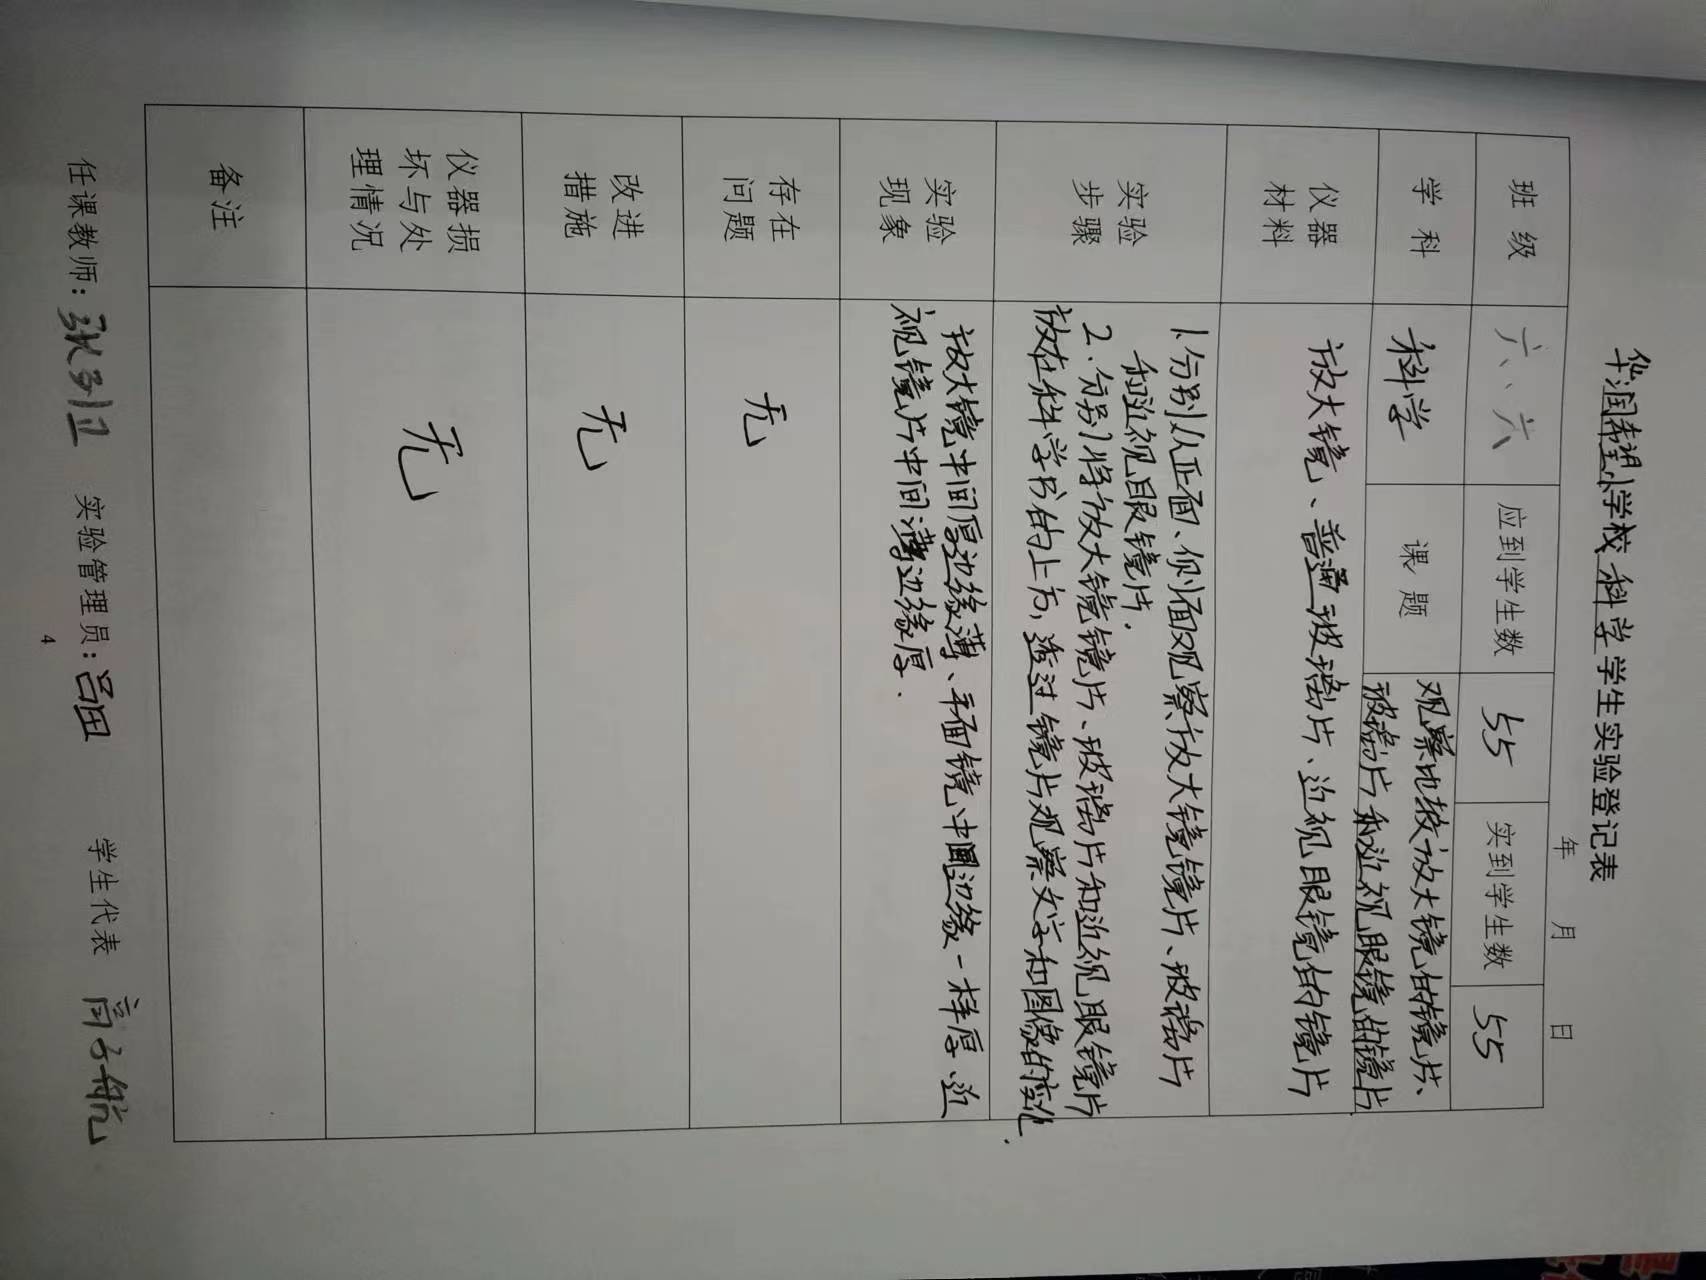 华润希望小学校 科学 学生实验登记表
年 月 日
班级 六、六 应到学生数 55 实到学生数 55
学科 科学 课题 观察比较放大镜的镜片、
玻璃片和近视眼镜的镜片
仪器
材料
放大镜、普通玻璃片、近视眼镜的镜片
实验
步骤
1.分别从正面、侧面观察放大镜镜片、玻璃片
和近视眼镜片.
2.分别将放大镜镜片、玻璃片和近视眼镜片
放在科学书的上方,透过镜片观察文字和图像的变化.
实验
现象
放大镜中间厚边缘薄、平面镜中间边缘一样厚、近
视镜片中间薄边缘厚.
存在
问题
无
改进
措施
无
仪器损
坏与处
理情况
无
备注
任课教师: 实验管理员:吕田 学生代表 高子航
4